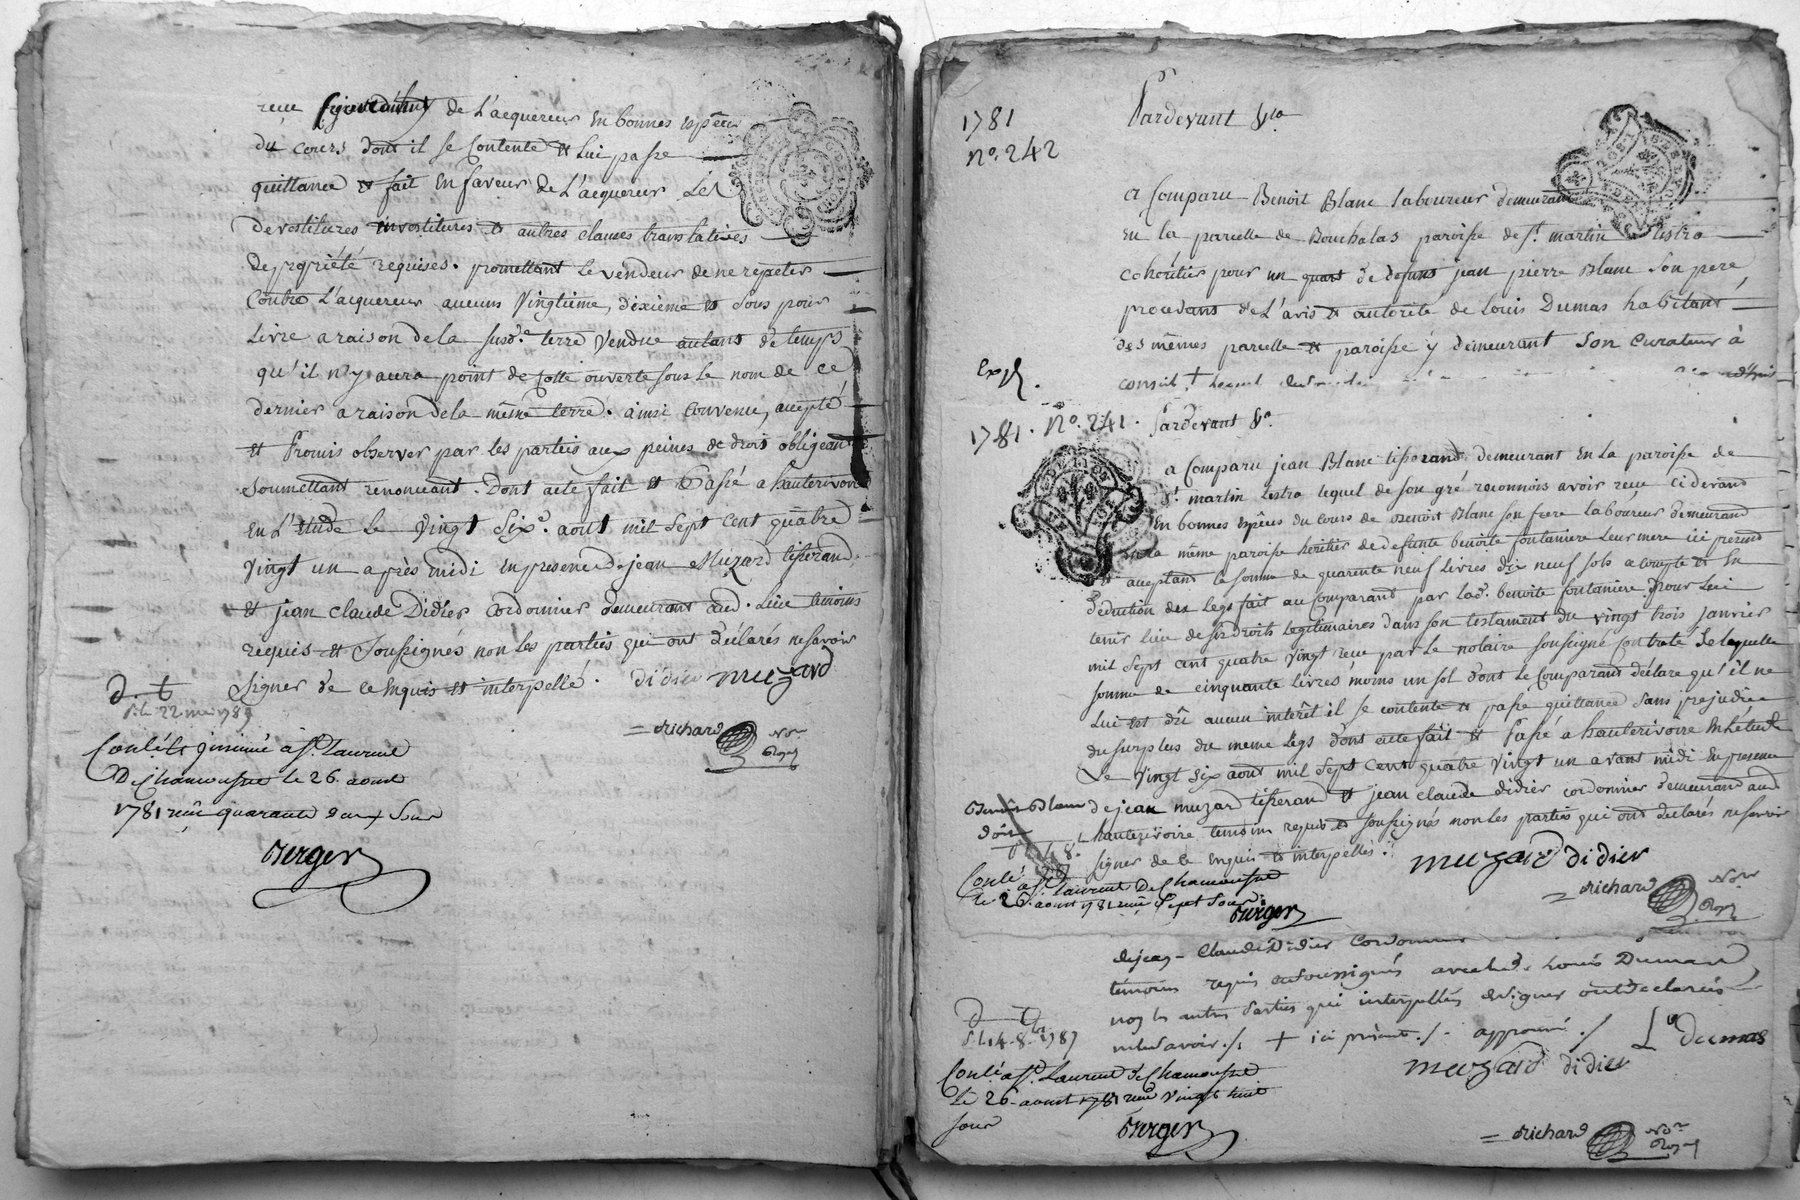 reçu de L'acquereur En bonnes Espêces
du cours dont il se Contente & Lui passe
quittance & fait En faveur de L'acquereur Les
devestitures investitures & autres clauses translatives
de propriété requises. promettant le vendeur de ne repeter
Contre L'acquereur aucuns Vingtieme, dixieme & Sous pour
Livre a raison de la susd.e terre Vendue autans de temps
qu'il n'y aura point de Cotte ouverte sous le nom de ce
dernier a raison de la même terre. ainsi convenu, accepté
& Promis observer par les parties aux peines de droit obligeant
soumettant renonceant. Dont acte fait & Passé a hauterivoire
En L'Etude Le Vingt Six aout mil Sept Cent quatre
Vingt un après midi En presence de jean Muzard tisserand
& jean claude Didier Cordonnier demeurant aud. Lieu temoins
requis & Soussignés non Les parties qui ont déclarés ne savoir
Signer de ce Enquis & interpellé. didier muzard
D. t
S. Le 22 mai 1789
= Richard Nore Royal
Conlé & jnsinué à St. Laurent
De Chamousset le 26. aoust
1781 reçu quarante deux Sous
Berger
1781
No. 242
Pardevant &a
a Comparu Benoit Blanc laboureur demeurant
En la parcelle de Bouchalas paroisse de St. martin Lestra
cohéritier pour un quart de defunt jean pierre Blanc Son pere,
procedant de L'avis & autorité de Louis Dumas habitant
des mêmes parcelle & paroisse y demeurant Son curateur à
conseil + Lequel
Exp.
1781. No. 241. Pardevant &a.
a Comparu jean Blanc tisserand demeurant En La paroisse de
St. martin Lestra lequel de son gré reconnois avoir reçu ci devand
En bonnes Espêces du cours de Benoit Blanc son frere Laboureur demeurand
En la même paroisse heritier de defunte benoite fontaniere Leur mere ici present
& acceptand la somme de quarente neuf Livres dix neuf sols a compte & En
déduction des Legs fait au Comparand par Lad. benoite fontaniere Pour Lui
tenir lieu de ses droits Legitimaires dans son testament du vingt trois Janvier
mil sept cent quatre vingt reçu par le notaire soussigné Controlé de laquelle
somme de cinquante livres moins un sol dont le Comparand déclare qu'il ne
Lui est dû aucun intérêt il se contente & passe quittance Sans prejudice
du surplus du meme Legs dont acte fait & Passé à hauterivoire En L'étude
Le Vingt Six aout mil Sept Cent quatre Vingt un avant midi En presence
de jean muzard tisserand & jean claude didier cordonnier demeurand aud
hauterivoire temoins requis & soussignés non les parties qui ont declarés ne savoir
signer de ce Enquis & interpellés.
muzard didier
Benoit Blanc
doit
Conlé a St. Laurent De Chamousset
le 26. aoust 1781 reçu Sept Sous
Berger
= Richard Nore Royal
de jean Claude Didier Cordonnier
témoins requis & soussignés avec led. Louis Dumas
non les autres Parties qui interpellés de signer ont Declarés
ne le savoir ./. + ici présent ./. approuvé ./
Ls dumas
muzard didier
D t
S. L. 4. 8.bre 1789
Conlé a St. Laurent de Chamousset
Le 26. aoust 1781 reçu Vingt huit
sous
Berger
= Richard Nore Royal